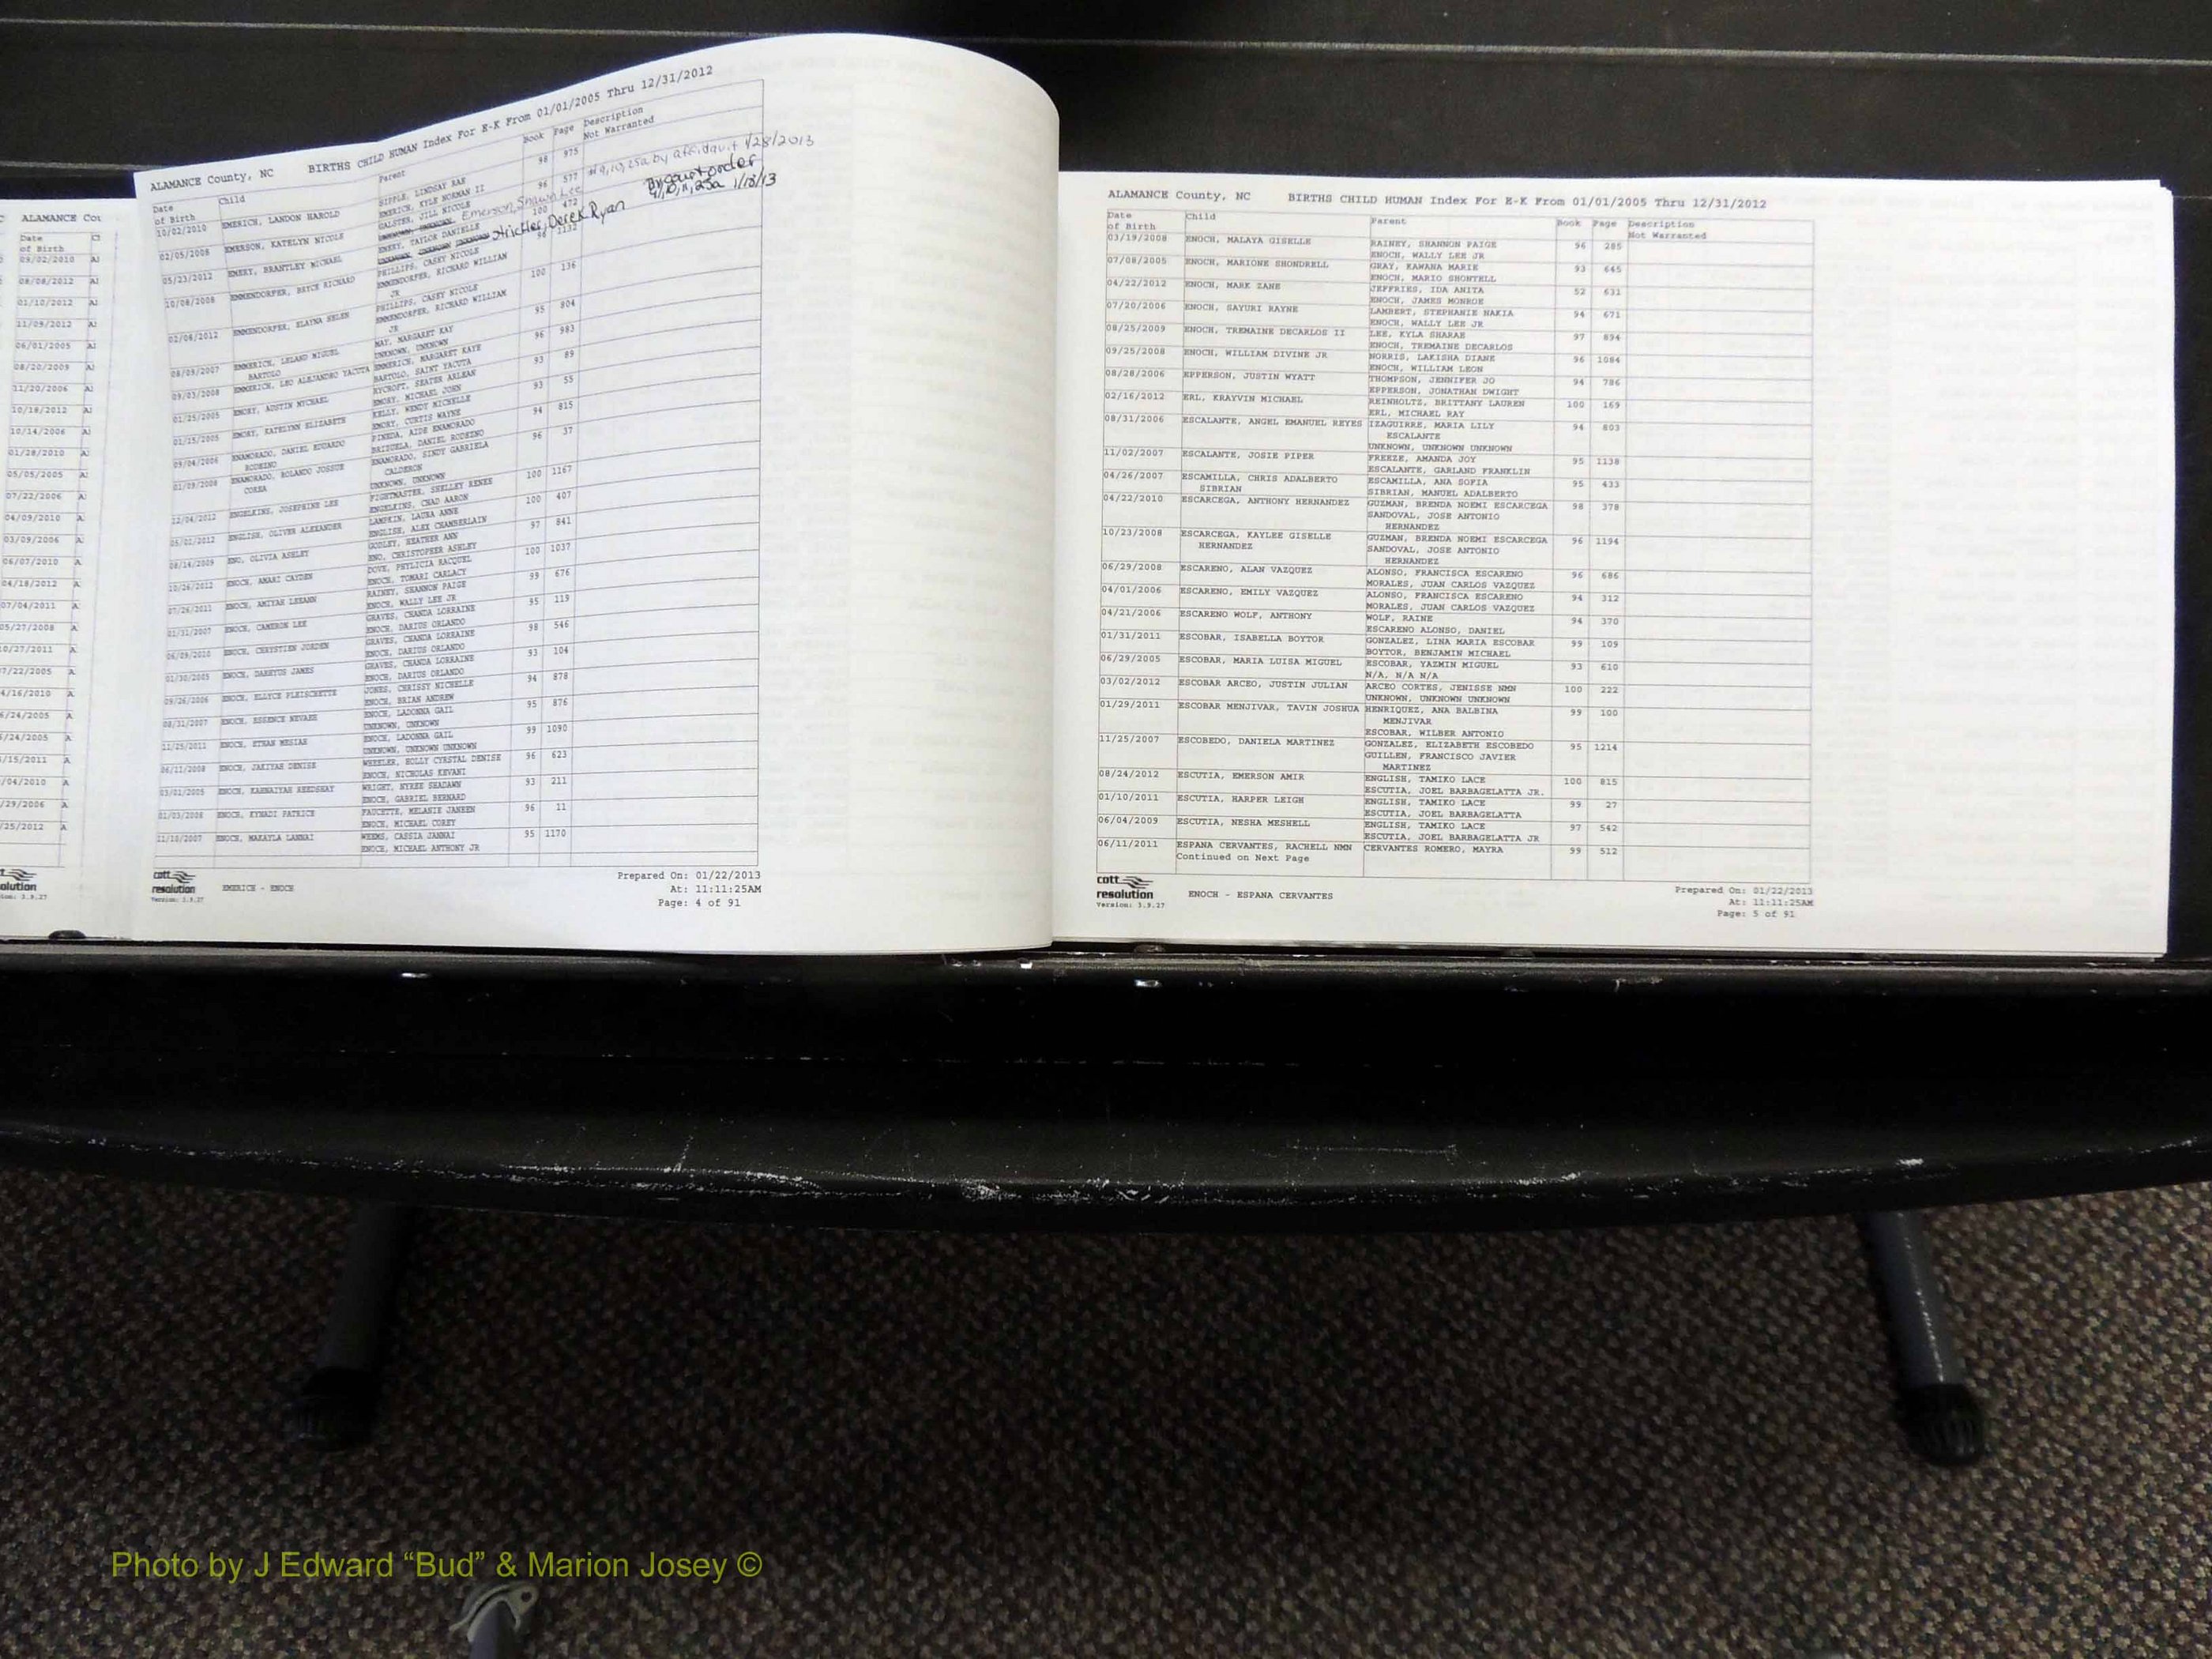 ALAMANCE County, NC BIRTHS CHILD HUMAN Index For E-K From 01/01/2005 Thru 12/31/2012
Date of Birth Child Parent Book Page Description Not Warranted
10/02/2010 EMERICH, LANDON HAROLD SIPPLE, LINDSAY RAE 98 975
EMERICH, KYLE NORMAN II
02/05/2008 EMERSON, KATELYN NICOLE GALSTER, JILL NICOLE 96 577 #9,10,25a by affidavit 1/28/2013
Emerson, Shawn Lee
05/23/2012 EMERY, BRANTLEY MICHAEL EMERY, TAYLOR DANIELLE 100 472 By court order
Strickler, Derek Ryan 1/18/13
10/08/2008 EMMENDORFER, BRYCE RICHARD PHILLIPS, CASEY NICOLE 96 1132
EMMENDORFER, RICHARD WILLIAM
JR
02/06/2012 EMMENDORFER, ELAYNA HELEN PHILLIPS, CASEY NICOLE 100 136
EMMENDORFER, RICHARD WILLIAM
JR
08/09/2007 EMMERICH, LELAND MIGUEL MAY, MARGARET KAY 95 804
BARTOLO UNKNOWN, UNKNOWN
09/03/2008 EMMERICH, LEO ALEJANDRO YACUTA EMMERICH, MARGARET KAYE 96 983
BARTOLO, SAINT YACUTA
01/25/2005 EMORY, AUSTIN MYCHAEL RYCROFT, SEATER ARLEAN 93 89
EMORY, MICHAEL JOHN
01/15/2005 EMORY, KATELYNN ELIZABETH KELLY, WENDY MICHELLE 93 55
EMORY, CURTIS WAYNE
09/04/2006 ENAMORADO, DANIEL EDUARDO PINEDA, AIDE ENAMORADO 94 815
RODEZNO BRIZUELA, DANIEL RODEZNO
01/09/2008 ENAMORADO, ROLANDO JOSSUE ENAMORADO, SINDY GABRIELA 96 37
COREA CALDERON
UNKNOWN, UNKNOWN
12/04/2012 ENGELKINS, JOSEPHINE LEE FIGHTMASTER, SHELLEY RENEE 100 1167
ENGELKINS, CHAD AARON
05/02/2012 ENGLISH, OLIVER ALEXANDER LAMPKIN, LAURA ANNE 100 407
ENGLISH, ALEX CHAMBERLAIN
08/14/2009 ENO, OLIVIA ASHLEY GODLEY, HEATHER ANN 97 841
ENO, CHRISTOPHER ASHLEY
10/26/2012 ENOCH, AMARI CAYDEN DOVE, PHYLICIA RACQUEL 100 1037
ENOCH, TOMARI CARLACY
07/26/2011 ENOCH, AMIYAH LEEANN RAINEY, SHANNON PAIGE 99 676
ENOCH, WALLY LEE JR
01/31/2007 ENOCH, CAMERON LEE GRAVES, CHANDA LORRAINE 95 119
ENOCH, DARIUS ORLANDO
06/09/2010 ENOCH, CHRYSTIEN JORDEN GRAVES, CHANDA LORRAINE 98 546
ENOCH, DARIUS ORLANDO
01/30/2005 ENOCH, DAREYUS JAMES GRAVES, CHANDA LORRAINE 93 104
ENOCH, DARIUS ORLANDO
09/26/2006 ENOCH, ELLYCE FLEISCHETTE JONES, CHRISSY NICHELLE 94 878
ENOCH, BRIAN ANDREW
08/31/2007 ENOCH, ESSENCE NEVAEH ENOCH, LADONNA GAIL 95 876
UNKNOWN, UNKNOWN
11/25/2011 ENOCH, ETHAN MESIAH ENOCH, LADONNA GAIL 99 1090
UNKNOWN, UNKNOWN UNKNOWN
06/11/2008 ENOCH, JAKIYAH DENISE WHEELER, HOLLY CYRSTAL DENISE 96 623
ENOCH, NICHOLAS KEVANI
03/01/2005 ENOCH, KAHNAIYAH REEDSHAY WRIGHT, NYREE SHADAWN 93 211
ENOCH, GABRIEL BERNARD
01/03/2008 ENOCH, KYNADI PATRICE FAUCETTE, MELANIE JANEEN 96 11
ENOCH, MICHAEL COREY
11/10/2007 ENOCH, MAKAYLA LANNAI WEEMS, CASSIA JANNAI 95 1170
ENOCH, MICHAEL ANTHONY JR
cott resolution
Version: 3.9.27
EMERICH - ENOCH
Prepared On: 01/22/2013
At: 11:11:25AM
Page: 4 of 91
ALAMANCE County, NC BIRTHS CHILD HUMAN Index For E-K From 01/01/2005 Thru 12/31/2012
Date of Birth Child Parent Book Page Description Not Warranted
03/19/2008 ENOCH, MALAYA GISELLE RAINEY, SHANNON PAIGE 96 285
ENOCH, WALLY LEE JR
07/08/2005 ENOCH, MARIONE SHONDRELL GRAY, KAWANA MARIE 93 645
ENOCH, MARIO SHONTELL
04/22/2012 ENOCH, MARK ZANE JEFFRIES, IDA ANITA 52 631
ENOCH, JAMES MONROE
07/20/2006 ENOCH, SAYURI RAYNE LAMBERT, STEPHANIE NAKIA 94 671
ENOCH, WALLY LEE JR
08/25/2009 ENOCH, TREMAINE DECARLOS II LEE, KYLA SHARAE 97 894
ENOCH, TREMAINE DECARLOS
09/25/2008 ENOCH, WILLIAM DIVINE JR NORRIS, LAKISHA DIANE 96 1084
ENOCH, WILLIAM LEON
08/28/2006 EPPERSON, JUSTIN WYATT THOMPSON, JENNIFER JO 94 786
EPPERSON, JONATHAN DWIGHT
02/16/2012 ERL, KRAYVIN MICHAEL REINHOLTZ, BRITTANY LAUREN 100 169
ERL, MICHAEL RAY
08/31/2006 ESCALANTE, ANGEL EMANUEL REYES IZAGUIRRE, MARIA LILY 94 803
ESCALANTE
UNKNOWN, UNKNOWN UNKNOWN
11/02/2007 ESCALANTE, JOSIE PIPER FREEZE, AMANDA JOY 95 1138
ESCALANTE, GARLAND FRANKLIN
04/26/2007 ESCAMILLA, CHRIS ADALBERTO ESCAMILLA, ANA SOFIA 95 433
SIBRIAN SIBRIAN, MANUEL ADALBERTO
04/22/2010 ESCARCEGA, ANTHONY HERNANDEZ GUZMAN, BRENDA NOEMI ESCARCEGA 98 378
SANDOVAL, JOSE ANTONIO
HERNANDEZ
10/23/2008 ESCARCEGA, KAYLEE GISELLE GUZMAN, BRENDA NOEMI ESCARCEGA 96 1194
HERNANDEZ SANDOVAL, JOSE ANTONIO
HERNANDEZ
06/29/2008 ESCARENO, ALAN VAZQUEZ ALONSO, FRANCISCA ESCARENO 96 686
MORALES, JUAN CARLOS VAZQUEZ
04/01/2006 ESCARENO, EMILY VAZQUEZ ALONSO, FRANCISCA ESCARENO 94 312
MORALES, JUAN CARLOS VAZQUEZ
04/21/2006 ESCARENO WOLF, ANTHONY WOLF, RAINE 94 370
ESCARENO ALONSO, DANIEL
01/31/2011 ESCOBAR, ISABELLA BOYTOR GONZALEZ, LINA MARIA ESCOBAR 99 109
BOYTOR, BENJAMIN MICHAEL
06/29/2005 ESCOBAR, MARIA LUISA MIGUEL ESCOBAR, YAZMIN MIGUEL 93 610
N/A, N/A N/A
03/02/2012 ESCOBAR ARCEO, JUSTIN JULIAN ARCEO CORTES, JENISSE NMN 100 222
UNKNOWN, UNKNOWN UNKNOWN
01/29/2011 ESCOBAR MENJIVAR, TAVIN JOSHUA HENRIQUEZ, ANA BALBINA 99 100
MENJIVAR
ESCOBAR, WILBER ANTONIO
11/25/2007 ESCOBEDO, DANIELA MARTINEZ GONZALEZ, ELIZABETH ESCOBEDO 95 1214
GUILLEN, FRANCISCO JAVIER
MARTINEZ
08/24/2012 ESCUTIA, EMERSON AMIR ENGLISH, TAMIKO LACE 100 815
ESCUTIA, JOEL BARBAGELATTA JR.
01/10/2011 ESCUTIA, HARPER LEIGH ENGLISH, TAMIKO LACE 99 27
ESCUTIA, JOEL BARBAGELATTA
06/04/2009 ESCUTIA, NESHA MESHELL ENGLISH, TAMIKO LACE 97 542
ESCUTIA, JOEL BARBAGELATTA JR
06/11/2011 ESPANA CERVANTES, RACHELL NMN CERVANTES ROMERO, MAYRA 99 512
Continued on Next Page
cott resolution
Version: 3.9.27
ENOCH - ESPANA CERVANTES
Prepared On: 01/22/2013
At: 11:11:25AM
Page: 5 of 91
Photo by J Edward “Bud” & Marion Josey ©